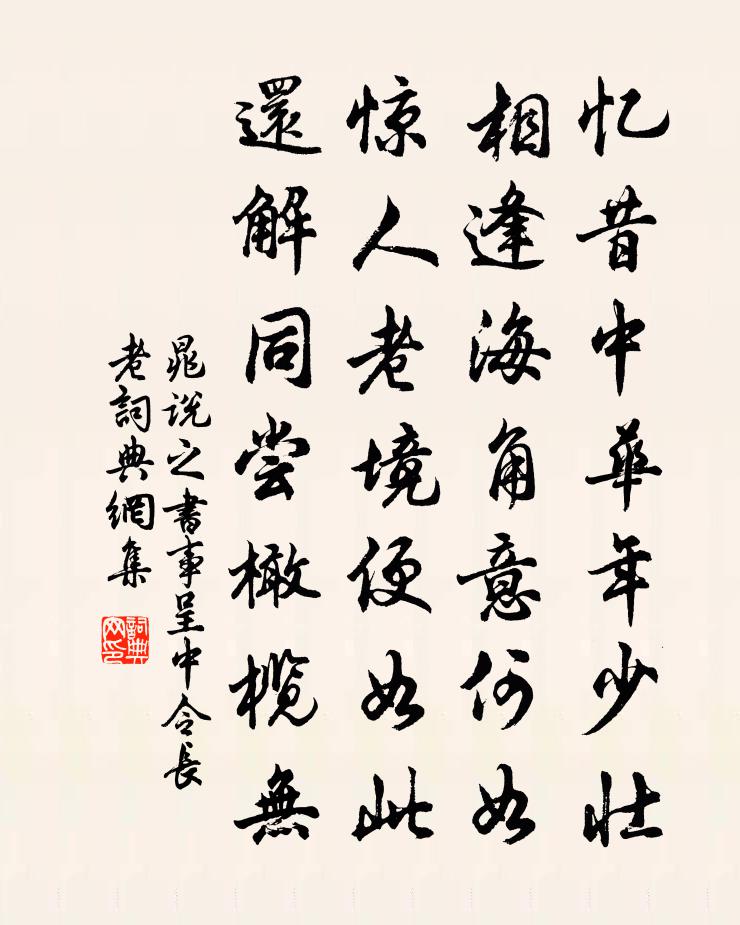 忆昔中華年少壮
相逢海角意何如
惊人老境便如此
還解同尝橄榄無
晁说之書事呈中令長
老詞典網集
詞典
网印